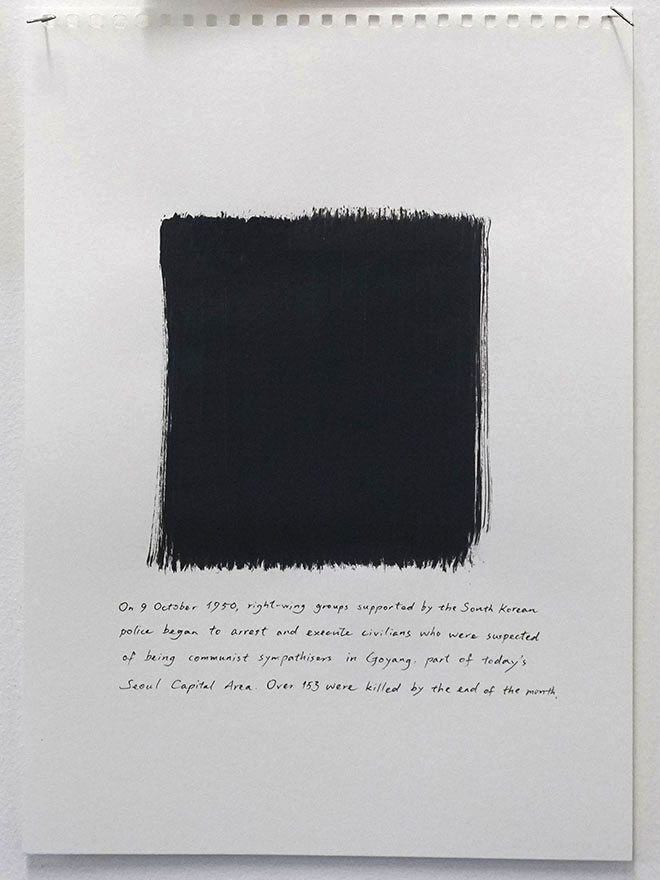 On 9 October 1950, right-wing groups supported by the South Korean
police began to arrest and execute civilians who were suspected
of being communist sympathisers in Goyang, part of today's
Seoul Capital Area. Over 153 were killed by the end of the month.